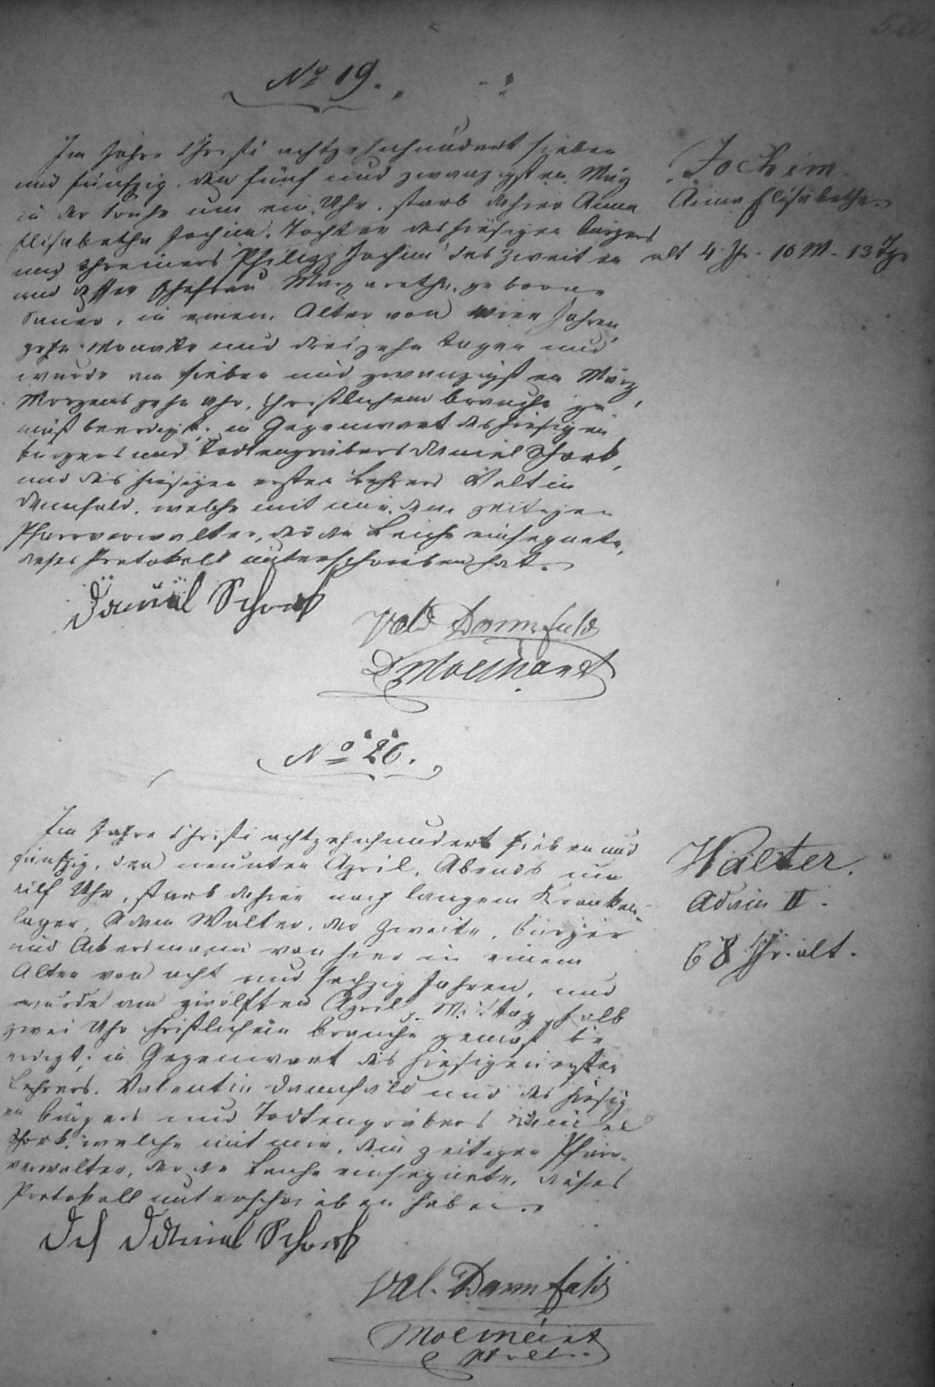 No 19.
Im Jahre Christi achtzehnhundert sieben
und fünfzig, den fünf und zwanzigsten März
in der Frühe um ein Uhr, starb dahier Anna
Elisabetha Jochim, Tochter des hiesigen Bürgers
und Schreiners Philipp Jochim des Zweiten
und dessen Ehefrau Margaretha, geborene
in einem Alter von vier Jahren
zehn Monate und dreizehn Tagen und
wurde am sieben und zwanzigsten März
Morgens zehn Uhr, christlichem Brauche ge-
mäß beerdigt, in Gegenwart des hiesigen
Bürgers und Todtengräbers Daniel Schork,
und des hiesigen ersten Lehrers Valtin
Dannfald, welche mit mir, dem zeitigen
Pfarrverwalter, der die Leiche einsegnete,
dieses Protokoll unterschrieben hat.
Jochim.
Anna Elisabetha.
alt 4 Jr. 10 M. 13 Tge
Daniel Schork
Val Dannfald
No 20.
Im Jahre Christi achtzehnhundert sieben und
fünfzig, den neunten April, Abends um
eilf Uhr, starb dahier nach langem Kranken-
lager, Adam Walter, der Zweite, Bürger
und Ackersmann von hier in einem
Alter von acht und sechzig Jahren, und
wurde am zwölften April, Mittag halb
zwei Uhr christlichem Brauche gemäß be
erdigt, in Gegenwart des hiesigen ersten
Lehrers, Valentin Dannfald und des hiesig
en Bürgers und Todtengräbers Daniel
Schork, welche mit mir, dem zeitigen Pfarr-
verwalter, der die Leiche einsegnete, dieses
Protokoll unterschrieben haben.
Walter.
Adam II.
68 Jr. alt.
Daniel Schork
Val. Dannfald